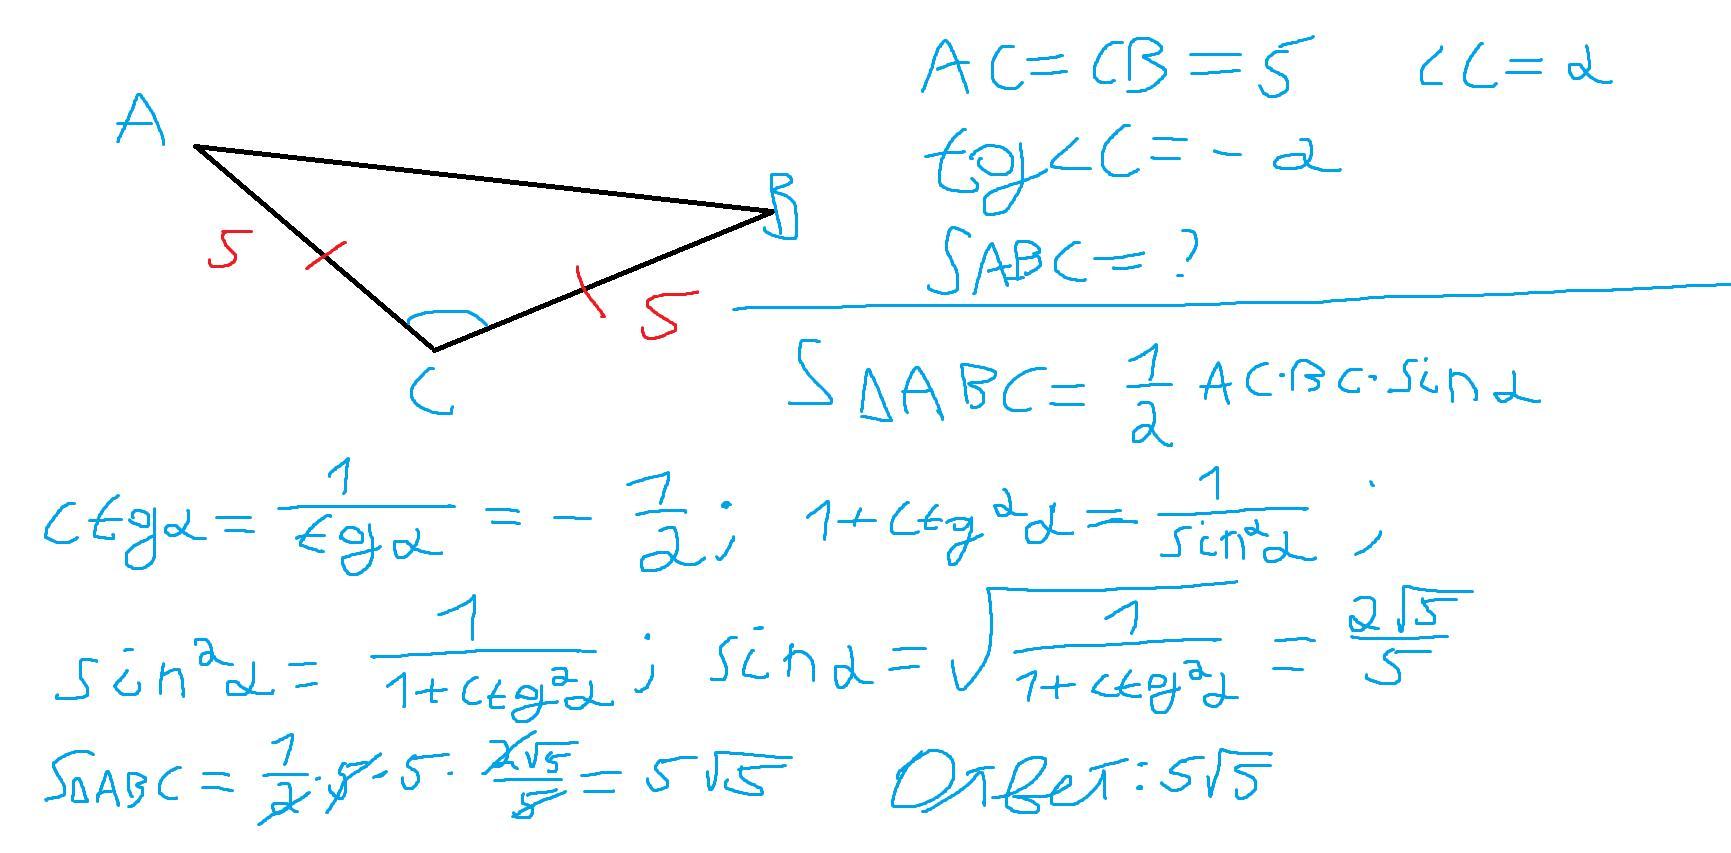 A
B
C
5
5
AC = CB = 5 <C = α
tg<C = - 2
SABC = ?
S△ABC = 1/2 AC·BC·sinα
ctgα = 1/tgα = - 1/2; 1+ctg²α = 1/sin²α ;
sin²α = 1/(1+ctg²α) ; sinα = √(1/(1+ctg²α)) = 2√5/5
S△ABC = 1/2 · 5 · 5 · 2√5/5 = 5√5 Ответ: 5√5